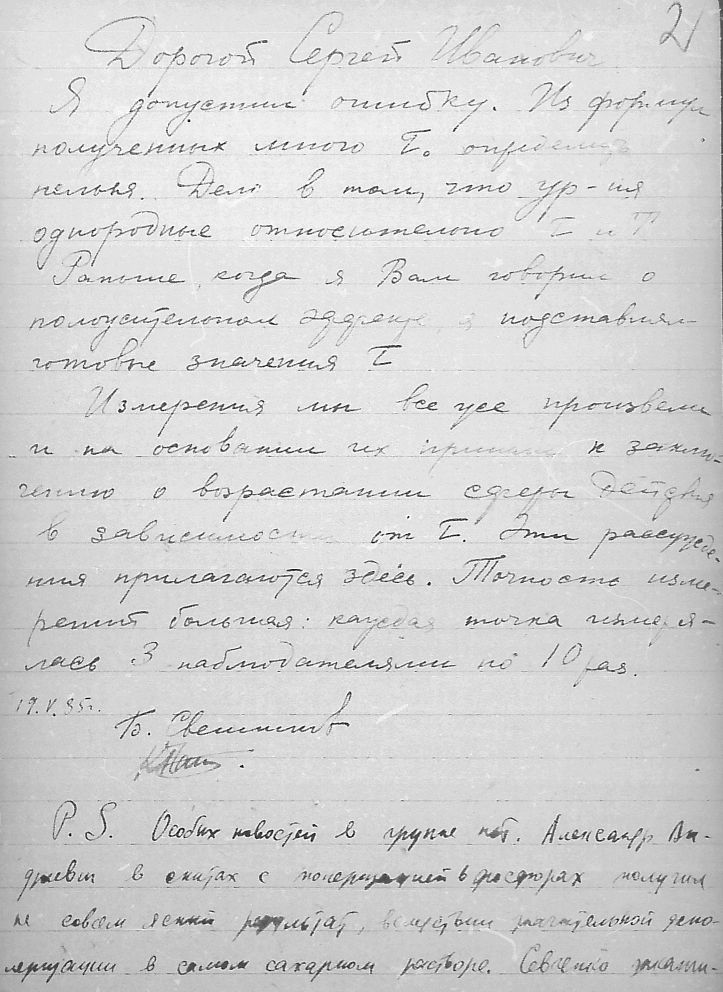 21
Дорогой Сергей Иванович
Я допустил ошибку. Из формул
полученных мною τ₀ определить
нельзя. Дело в том, что ур-ия
однородные относительно τ и T
Раньше, когда я Вам говорил о
положительном эффекте, я подставлял
готовые значения τ
Измерения мы все же произвели
и на основании их пришли к заклю-
чению о возрастании сферы действия
в зависимости от τ. Эти рассужде-
ния прилагаются здесь. Точность изме-
рений большая: каждая точка измеря-
лась 3 наблюдателями по 10 раз.
19.V.35г.
Б. Свешников
P.S. Особых новостей в группе нет. Александр Ан-
дреевич в опытах с поляризацией в фосфорах получил
не совсем ясный результат, вследствии значительной депо-
ляризации в самом сахарном растворе. Севченко